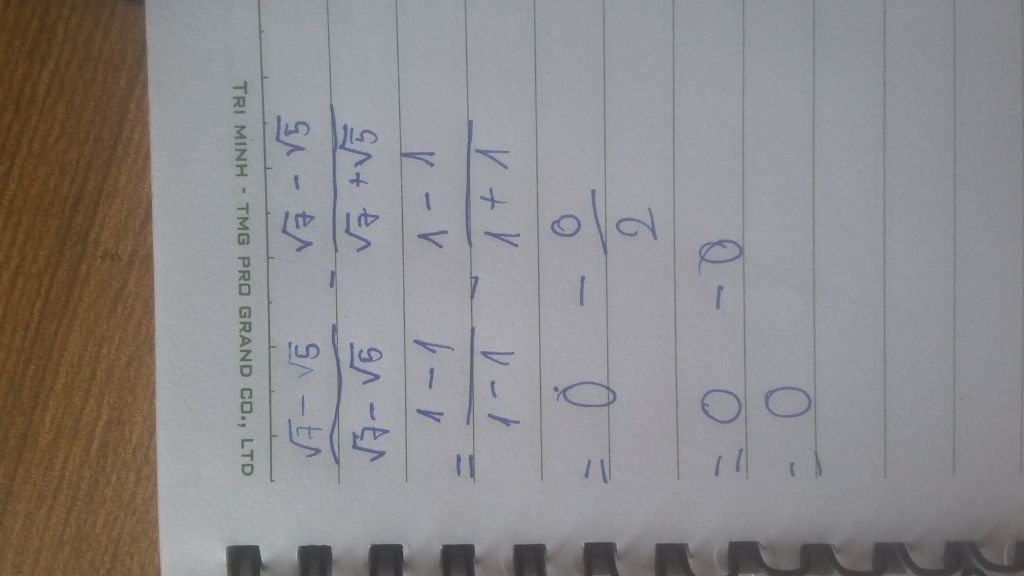 TRI MINH - TMG PRO GRAND CO., LTD
√7 - √5 / √7 - √5 - √7 - √5 / √7 + √5
= 1 - 1 / 1 - 1 - 1 - 1 / 1 + 1
= 0 - 0 / 2
= 0 - 0
= 0